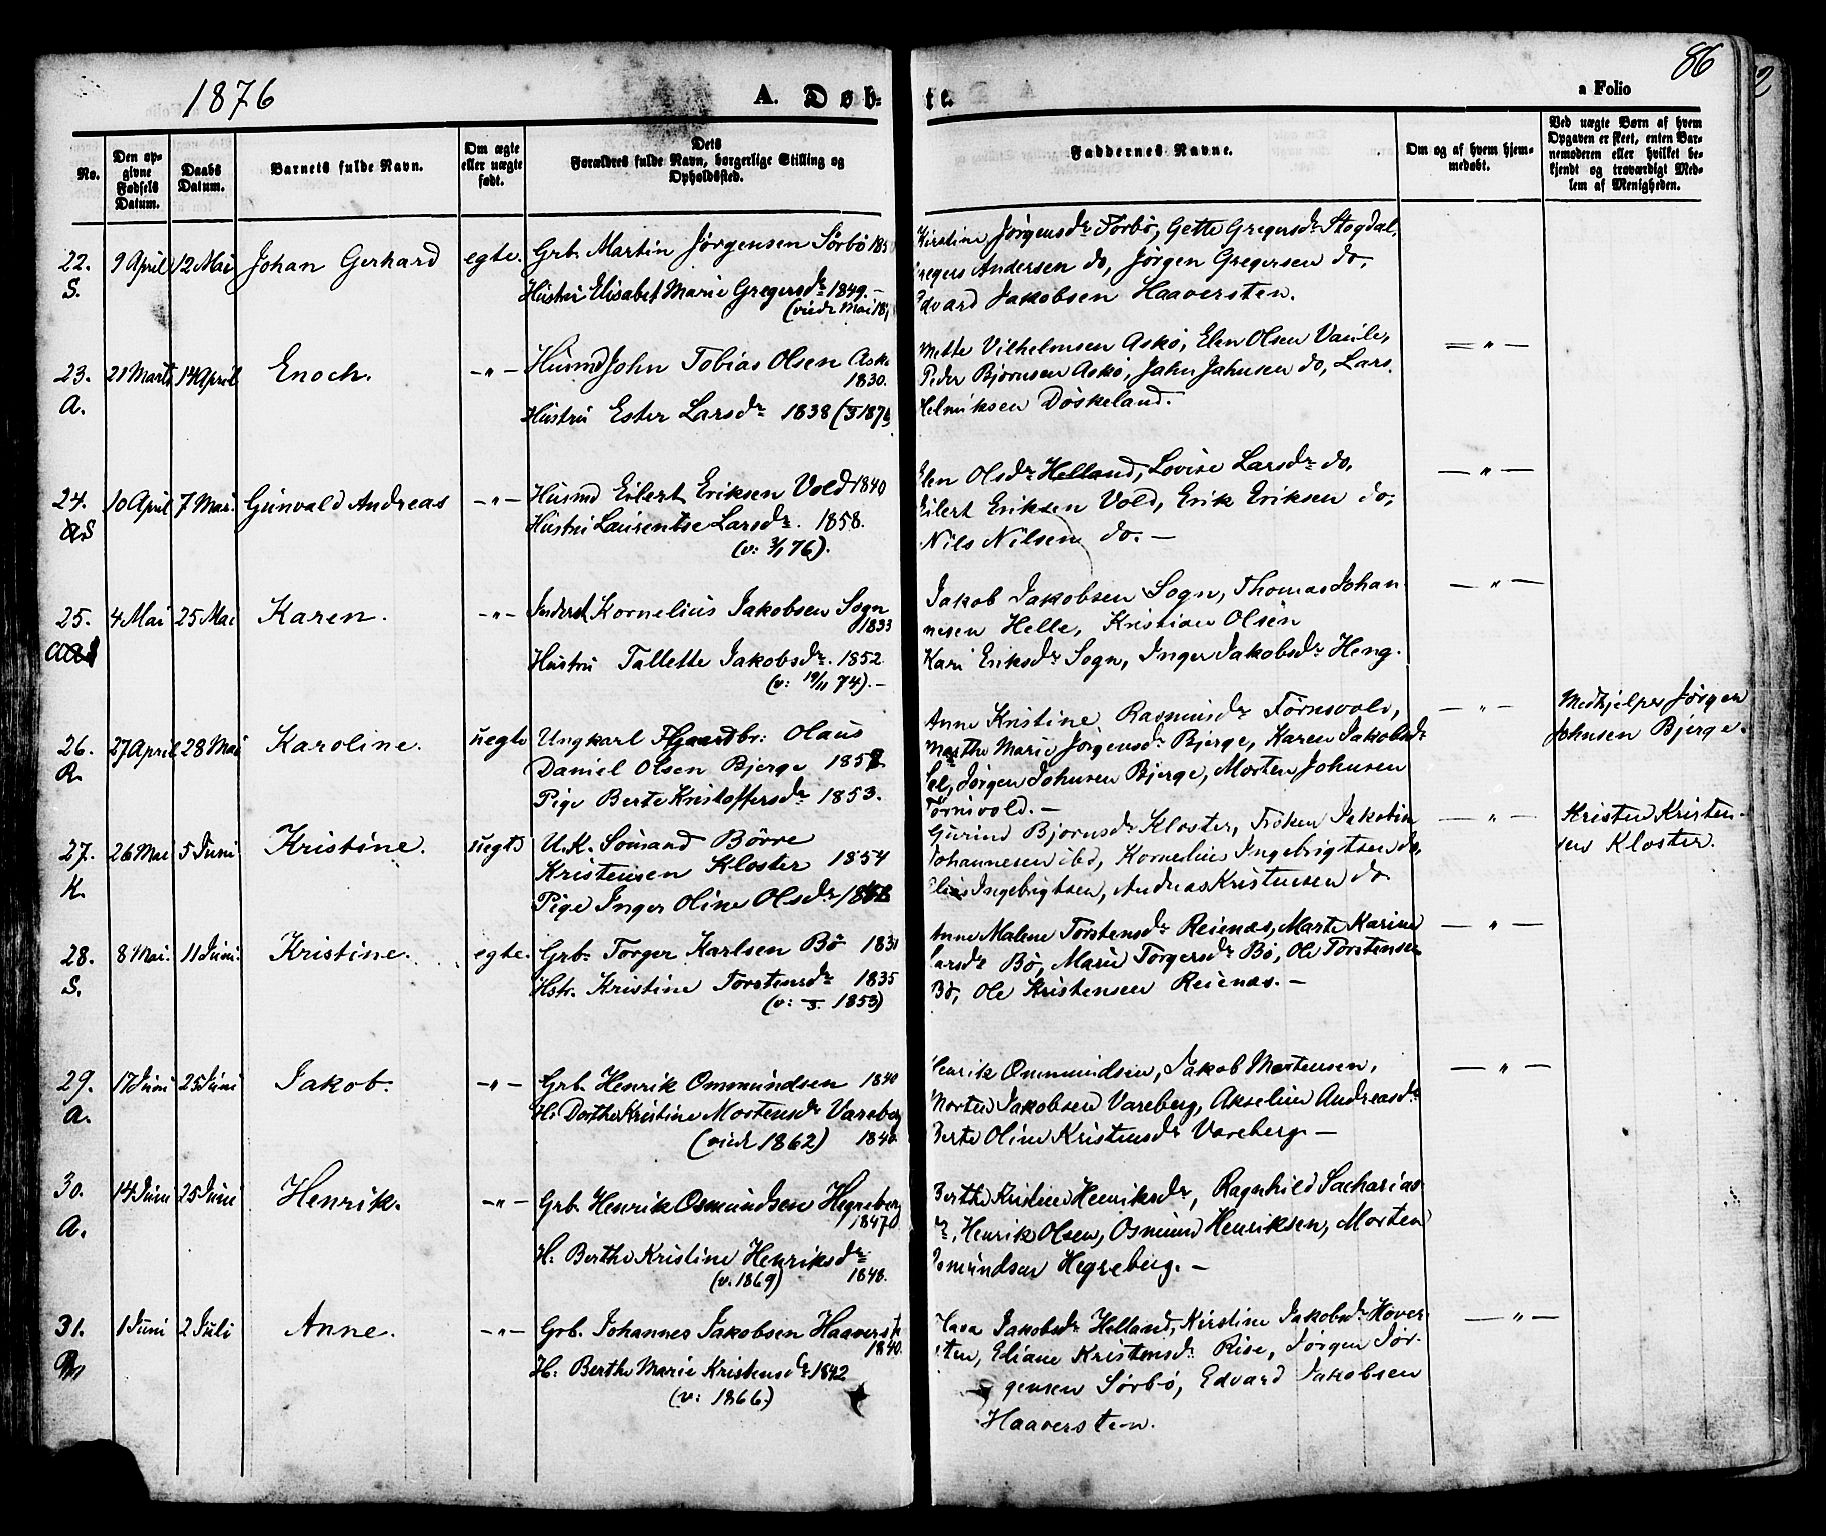 1876
A. Døb-
te.
a Folio
86
No.
Den op-
givne
Fødsels
Datum.
Daabs
Datum.
Barnets fulde Navn.
Om ægte
eller uægte
født.
Dets
Forældres fulde Navn, borgerlige Stilling og
Opholdssted.
Faddernes Navne.
Om og af hvem hjem-
medøbt.
Ved uægte Børn af hvem
Opgaven er skeet, enten Bar-
nemoderen eller hvilket be-
kjendt og troværdigt Med-
lem af Menigheden.
22.
S.
9 April
12 Mai
Johan Gerhard
egte.
Grb. Martin Jörgensen Sörbö
Hustru Elisabet Marie Gregersdr 1849.-
(viede Mai
Kirstine Jörgensdr Sörbö, Gette Gregersdr Stogdal,
Gregers Andersen do, Jörgen Gregersen do,
Edvard Jakobsen Haaversten.
23.
A.
21 Marts
14 April
Enoch.
-"-
Husmd John Tobias Olsen Askö
1830.
Hustru Ester Larsdr 1838
Mette Vilhelmsen Askö, Elen Olsen Vaule,
Peder Björnsen Askö, John Johnsen do, Lars
Helmiksen Döskeland.
-"-
24.
S
10 April
7 Mai
Gunvald Andreas
-"-
Husmd Eilert Eriksen Vold 1840
Hustru Laurentse Larsdr. 1858.
(v: 3/1 76).
Elen Olsdr Helland, Lovise Larsdr do,
Eilert Eriksen Vold, Erik Eriksen do,
Nils Nilsen do. -
-"-
25.
4 Mai
25 Mai
Karen.
-"-
Inderst Kornelius Jakobsen Sogn
1833
Hustru Tallette Jakobsdr. 1852
(v: 19/11 74).-
Jakob Jakobsen Sogn, Thomas Johan-
nesen Helle, Kristian Olsen
Kari Eriksdr Sogn, Inger Jakobsdr Heng.
-"-
26.
R.
27 April
28 Mai
Karoline.
uegte
Ungkarl Gaardbr: Olaus
Daniel Olsen Bjerge 185
Pige Berte Kristoffersdr 1853.
Anne Kristine Rasmusdr Törnsvold,
Marthe Marie Jörgensdr Bjerge, Karen Jakobsdr
Sel, Jörgen Johnsen Bjerge, Morten Johnsen
Törnsvold.-
-"-
Medhjelper Jörgen
Johnsen Bjerge.
27.
K.
26 Mai
5 Juni
Kristine.
uegte
U.K. Sömand Börre
Kristensen Kloster 1854
Pige Inger Oline Olsdr
Gurine Bjornsdr Kloster, Fröken Jakobine
Johannesen ibd, Kornelius Ingebrigtsen do,
Elias Ingebrigtsen, Andreas Kristensen do
-"-
Kristen Kristen-
sen Kloster.
28.
S.
8 Mai.
11 Juni.
Kristine.
egte.
Grb. Torger Karlsen Bö
Hstr. Kristine Torstensdr 1835
(v: 1853)
Anne Malene Torstensdr Reienæs, Marte Karine
Larsdr Bö, Marie Torgersdr Bö, Ole Torstensen
Bö, Ole Kristensen Reienæs.-
-"-
29.
A.
17 Juni
25 Juni
Jakob.
-"-
Grb. Henrik Ommundsen 1840
H. Dorthe Kristine Mortensdr Vareberg
(viede 1862) 1840
Henrik Ommundsen, Jakob Mortensen,
Morten Jakobsen Vareberg, Akseline Andreasdr
Berte Oline Kristensdr Vareberg -
-"-
30.
A.
14 Juni
25 Juni
Henrik.
-"-
Grb. Henrik Osmundsen Hegreberg
1847
H. Berthe Kristine Henriksdr
(v. 1869) 1848.
Berthe Kristine Henriksdr, Ragnhild Sacharias-
dr, Henrik Olsen, Osmund Henriksen, Morten
Osmundsen Hegreberg.-
31.
1 Juni
2 Juli
Anne.
-"-
Grb. Johannes Jakobsen Haaverst
1840.
H. Berthe Marie Kristensdr 1842
(v: 1866.)
Jakobsdr Helland, Kirstine Jakobsdr Hover-
sten, Eliane Kristensdr Rise, Jörgen Jör-
gensen Sörbö, Edvard Jakobsen
Haaversten.
-"-